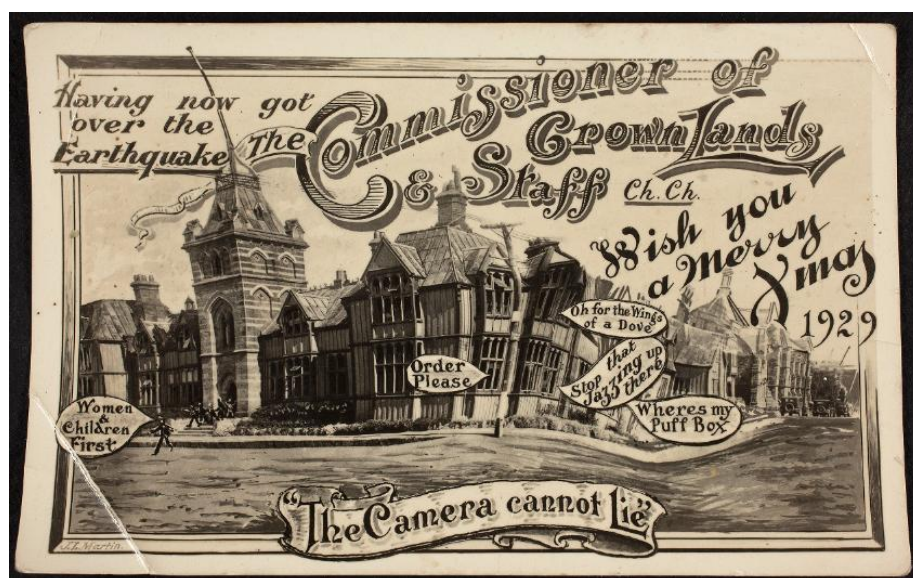 Having now got
over the
Earthquake
The
Commissioner of
Crown Lands
& Staff
Ch. Ch.
Wish you
a Merry
Xmas
1929
Oh for the Wings
of a Dove
Stop that
Jazzing up
there
Order
Please
Wheres my
Puff Box
Women
&
Children
First
"The Camera cannot Lie"
J.L. Martin.